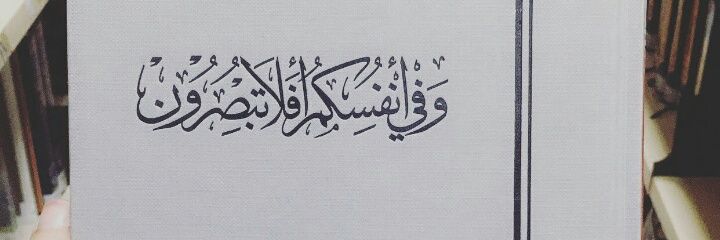 وَفِي أَنْفُسِكُمْ أَفَلَا تُبْصِرُونَ